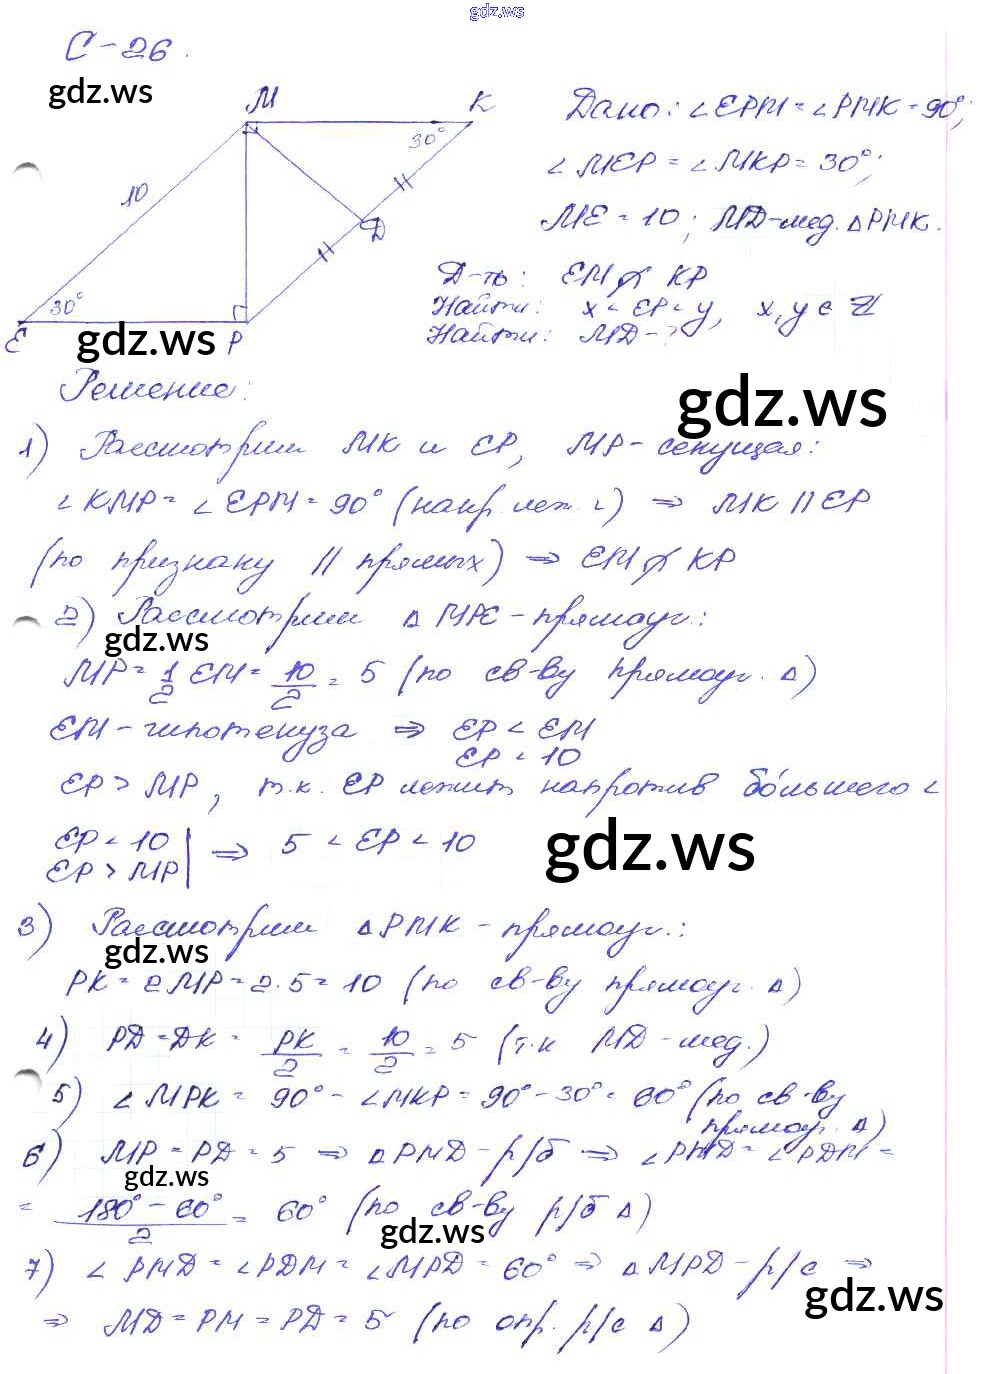 gdz.ws
С-26.
gdz.ws
М
К
30°
10
Д
30°
Е
Р
gdz.ws
Дано: ∠EPM = ∠PMK = 90°;
∠MEP = ∠MKP = 30°;
ME = 10; MD-мед. △PMK.
Д-ть: EM ∦ KP
Найти: x < EP < y, x, y ∈ Z
Найти: MD - ?
Решение:
gdz.ws
1) Рассмотрим MK и EP, MP-секущая:
∠KMP = ∠EPM = 90° (накр. леж. ∠) ⇒ MK || EP
(по признаку || прямых) ⇒ EM ∦ KP
2) Рассмотрим △MPE-прямоуг.:
gdz.ws
MP = 1/2 EM = 10/2 = 5 (по св-ву прямоуг. △)
EM-гипотенуза ⇒ EP < EM
EP < 10
EP > MP, т.к. EP лежит напротив бо́льшего ∠
EP < 10
EP > MP
⇒ 5 < EP < 10
gdz.ws
3) Рассмотрим △PMK-прямоуг.:
gdz.ws
PK = 2MP = 2·5 = 10 (по св-ву прямоуг. △)
4) PD = DK = PK/2 = 10/2 = 5 (т.к MD-мед.)
5) ∠MPK = 90° - ∠MKP = 90° - 30° = 60° (по св-ву
прямоуг. △)
6) MP = PD = 5 ⇒ △PMD-р/б ⇒ ∠PMD = ∠PDM =
gdz.ws
= 180° - 60°/2 = 60° (по св-ву р/б △)
gdz.ws
7) ∠PMD = ∠PDM = ∠MPD = 60° ⇒ △MPD-р/с ⇒
gdz.ws
⇒ MD = PM = PD = 5 (по опр. р/с △)